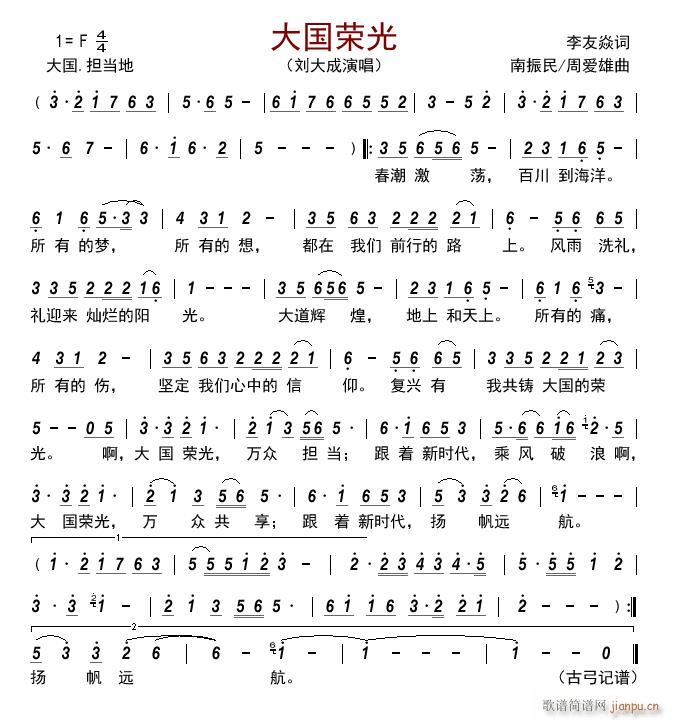 大国荣光
1= F 4/4
李友焱词
大国.担当地
(刘大成演唱)
南振民/周爱雄曲
( 3· 2 1 7 6 3 | 5 · 6 5 - | 6 1 1 7 6 6 5 5 2 | 3 - 5 2 | 3 - - - |
5 · 6 7 - | 6 · 1 6 · 2 | 5 - - - ) |: 3 5 6 5 6 5 - | 2 3 1 6 5 - |
春潮 激 荡， 百川 到海洋。
6 1 6 5 · 3 3 | 4 3 1 2 - | 3 5 6 3 2 2 2 2 1 | 6 - 5 6 6 5 |
所 有 的梦， 所 有的 想， 都在 我们 前行的 路 上。 风雨 洗礼，
3 3 5 2 2 2 1 6 | 1 - - - | 3 5 6 5 6 5 - | 2 3 1 6 5 - | 6 1 6 5 3 - |
礼迎来 灿烂的阳 光。 大道辉 煌， 地上 和天上。 所有的 痛，
4 3 1 2 - | 3 5 6 3 2 2 2 2 1 | 6 - 5 6 6 5 | 3 5 5 2 2 1 2 3 |
所 有的 伤， 坚定 我们心中的 信 仰。 复兴 有 我共铸 大国的荣
5 - - 0 5 | 3 · 3 2 1 · | 2 1 3 5 6 5 · | 1 6 5 3 · | 5 · 6 6 1 6 1 2 · 5 |
光。 啊，大 国 荣光， 万众 担 当； 跟 着 新时代， 乘 风 破 浪啊，
3 · 3 2 1 · | 2 1 3 5 6 5 · | 1 1 6 5 3 · | 5 3 3 2 1 6 1 - |
大 国荣光， 万 众 共 享； 跟 着 新时代， 扬 帆远 航。
1
( 1 · 2 1 7 6 3 | 5 5 5 1 2 3 - | 2 · 2 3 4 3 4 · 5 |
3 · 3 2 1 - | 2 1 3 5 6 5 · | 6 1 1 6 3 · 2 2 2 2 | 1 - - - ) :|
2
5 3 3 2 6 | 6 - 6 1 - | 1 - - - | 1 0 0 0 ‖
扬 帆 远 航。
(古弓记谱)
歌谱简谱网
jianpu.cn